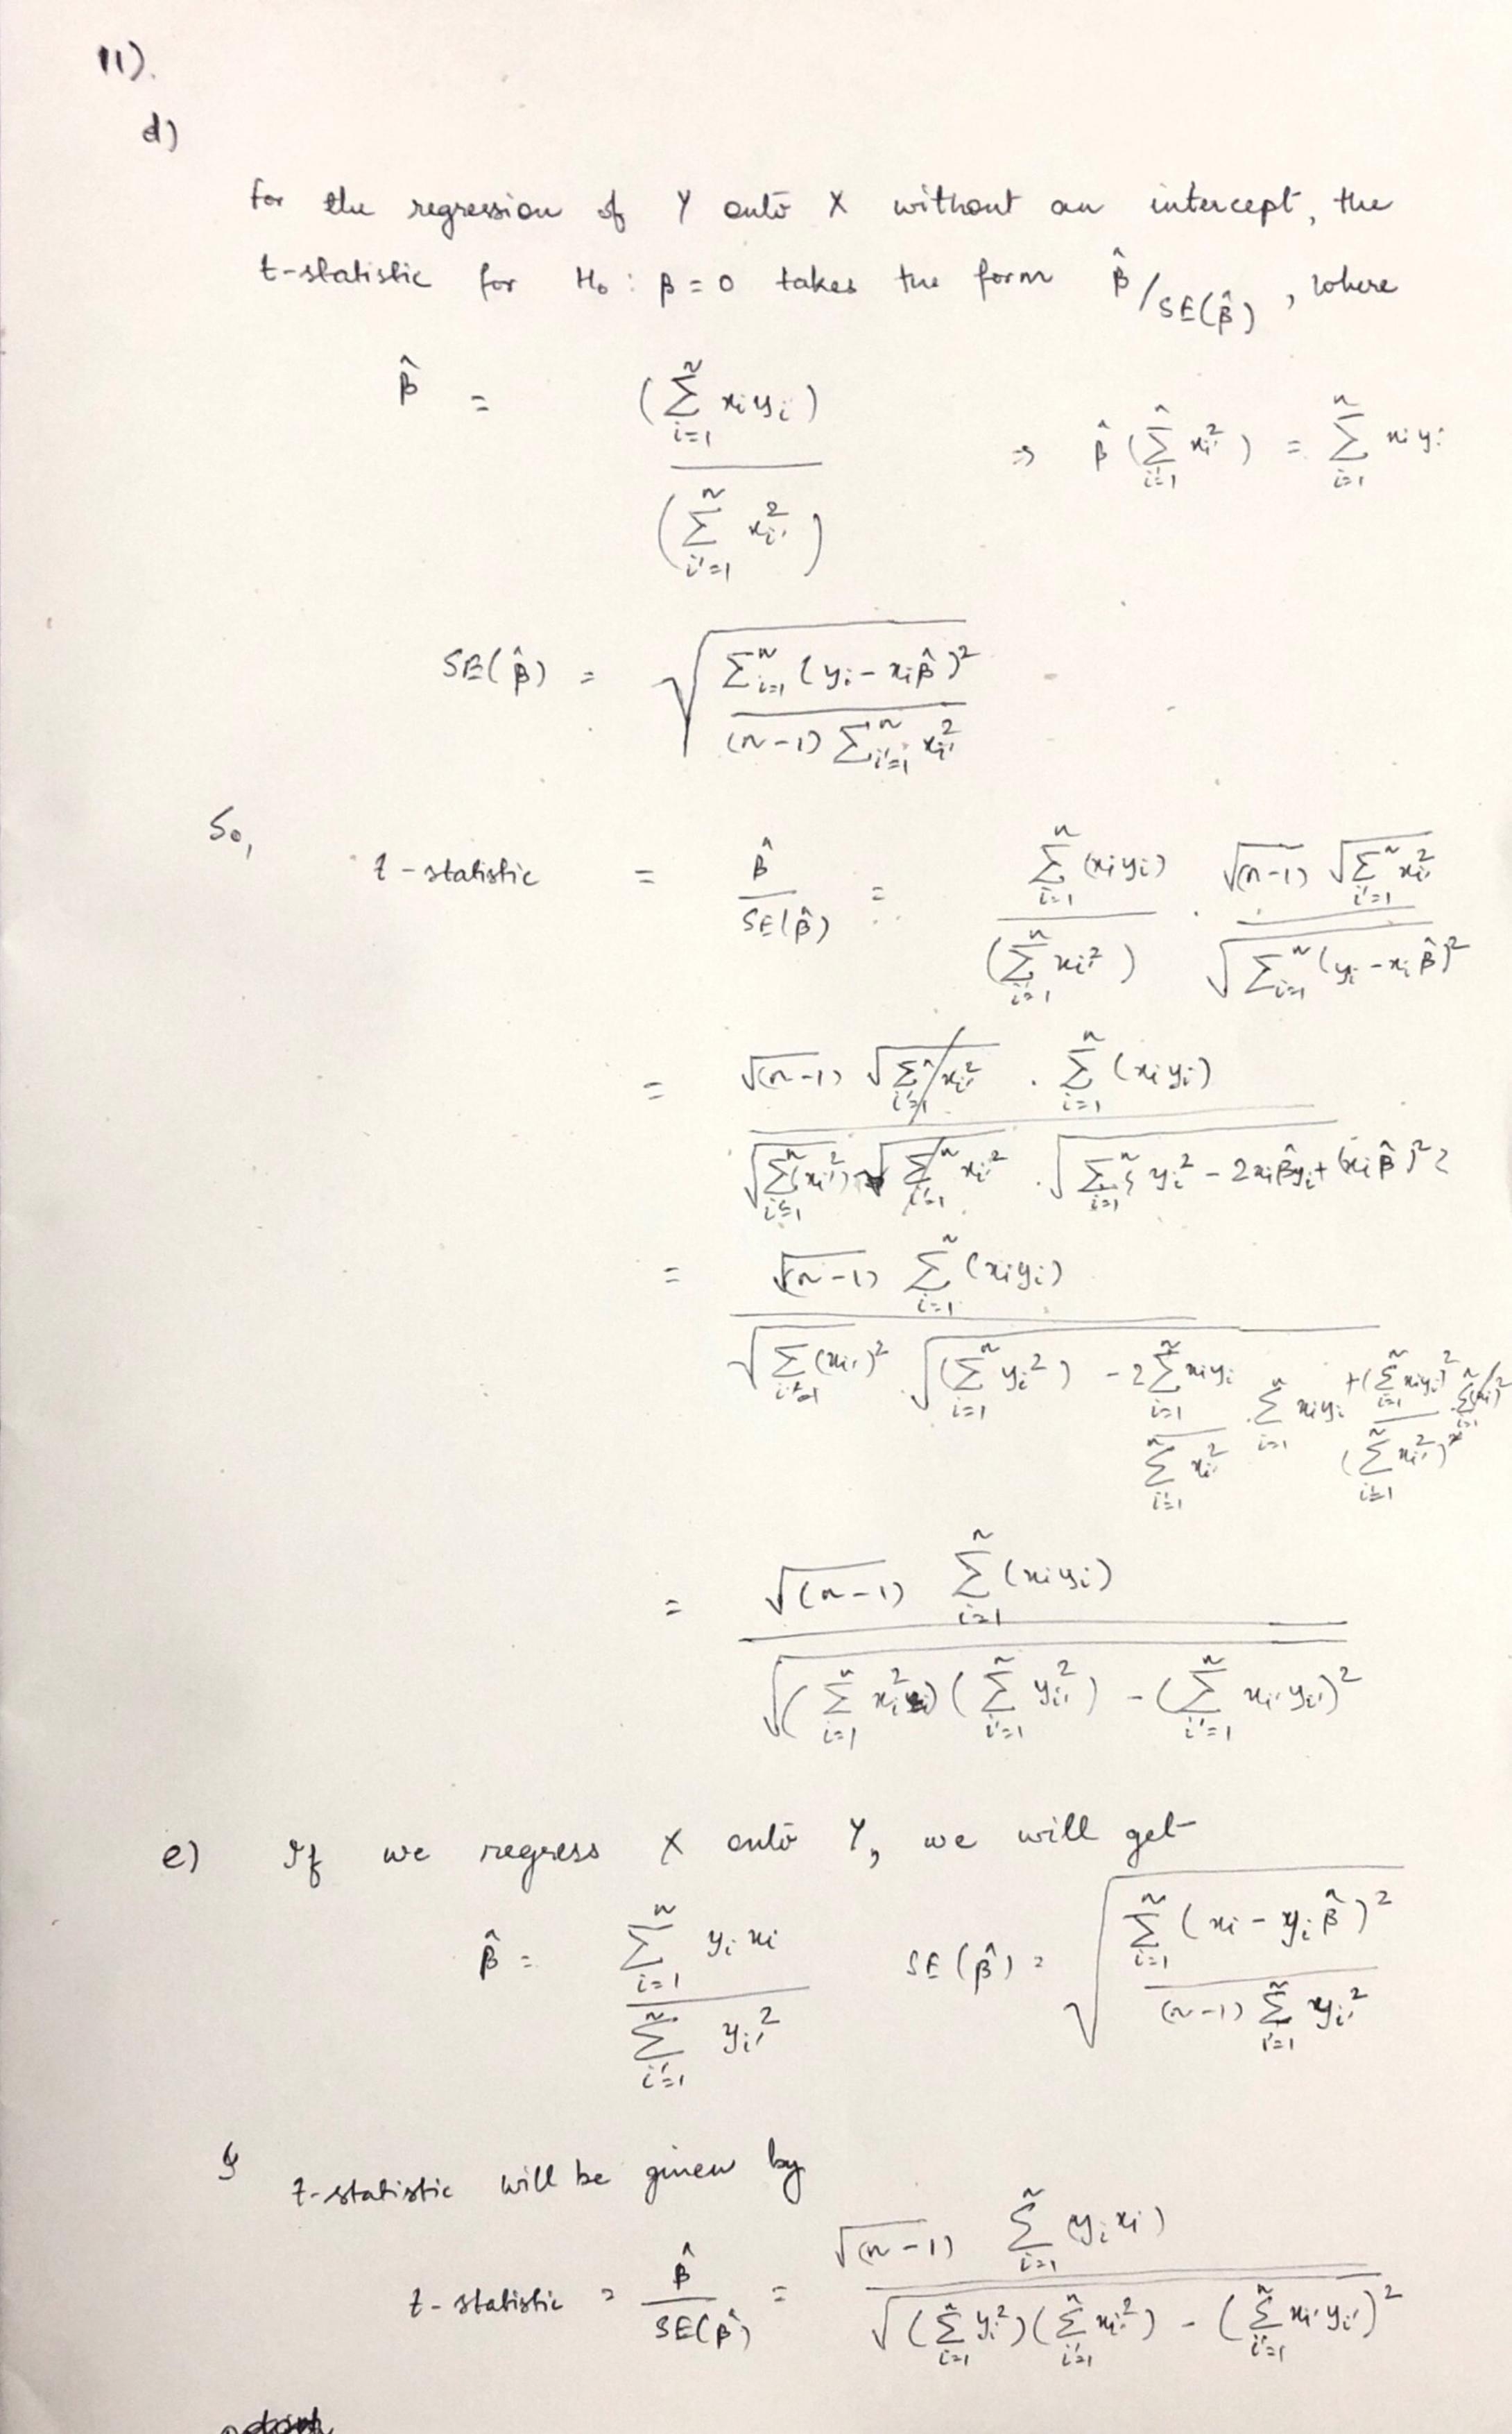 11).
d)
For the regression of Y onto X without an intercept, the
t-statistic for H₀ : β = 0 takes the form β̂ / SE(β̂) , where
β̂ = (∑_{i=1}^{n} xᵢyᵢ) / (∑_{i'=1}^{n} xᵢ'²) ⇒ β̂ (∑_{i'=1}^{n} xᵢ'²) = ∑_{i=1}^{n} xᵢyᵢ
SE(β̂) = √( ∑_{i=1}^{n} (yᵢ - xᵢβ̂)² / (n-1) ∑_{i'=1}^{n} xᵢ'² )
So,
t-statistic = β̂ / SE(β̂) = ∑_{i=1}^{n} (xᵢyᵢ) / (∑_{i'=1}^{n} xᵢ'²) · √(n-1) √(∑_{i'=1}^{n} xᵢ'²) / √(∑_{i=1}^{n} (yᵢ - xᵢβ̂)²)
= √(n-1) √(∑_{i'=1}^{n} xᵢ'²) · ∑_{i=1}^{n} (xᵢyᵢ) / √(∑_{i'=1}^{n} (xᵢ'²)) √(∑_{i'=1}^{n} xᵢ'²) · √(∑_{i=1}^{n} { yᵢ² - 2xᵢβ̂yᵢ + (xᵢβ̂)² })
= √(n-1) ∑_{i=1}^{n} (xᵢyᵢ) / √(∑_{i'=1} (xᵢ')²) √( (∑_{i=1}^{n} yᵢ²) - 2 ∑_{i=1}^{n} xᵢyᵢ / ∑_{i'=1}^{n} xᵢ'² · ∑_{i=1}^{n} xᵢyᵢ + (∑_{i=1}^{n} xᵢyᵢ)² / (∑_{i'=1}^{n} xᵢ'²)² · ∑_{i=1}^{n} (xᵢ)² )
= √(n-1) ∑_{i=1}^{n} (xᵢyᵢ) / √( (∑_{i=1}^{n} xᵢ²) (∑_{i'=1}^{n} yᵢ'²) - (∑_{i'=1}^{n} xᵢ'yᵢ')² )
e) If we regress X onto Y, we will get
β̂ = ∑_{i=1}^{n} yᵢxᵢ / ∑_{i'=1}^{n} yᵢ'² SE(β̂) = √( ∑_{i=1}^{n} (xᵢ - yᵢβ̂)² / (n-1) ∑_{i'=1}^{n} yᵢ'² )
& t-statistic will be given by
t-statistic = β̂ / SE(β̂) = √(n-1) ∑_{i=1}^{n} (yᵢxᵢ) / √( (∑_{i=1}^{n} yᵢ²) (∑_{i'=1}^{n} xᵢ'²) - (∑_{i'=1}^{n} xᵢ'yᵢ')² )